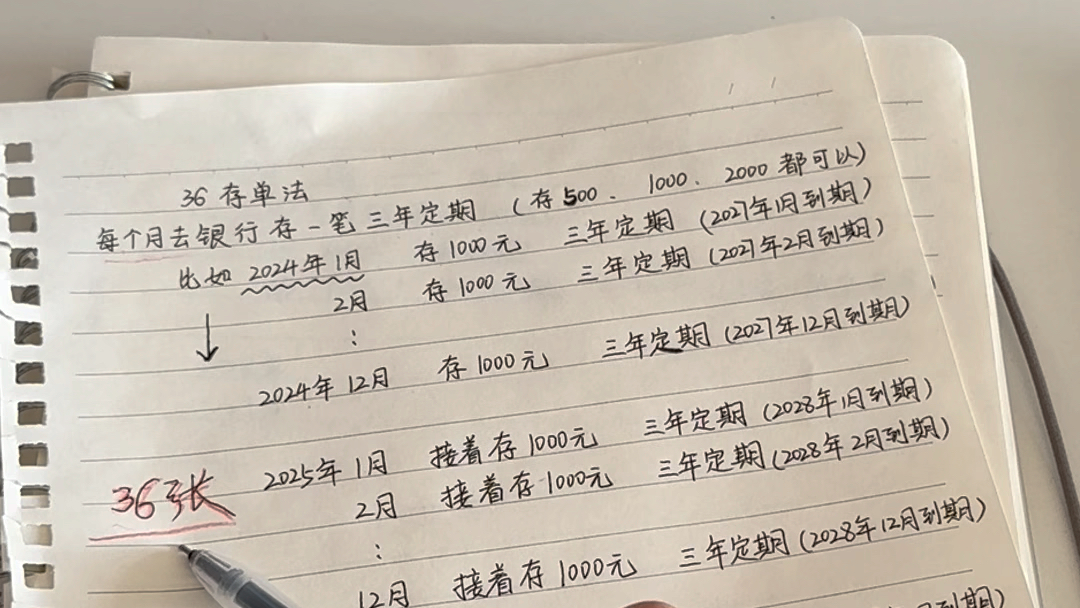 36存单法
每个月去银行存一笔三年定期（存500、1000、2000都可以）
比如2024年1月 存1000元 三年定期（2027年1月到期）
2月 存1000元 三年定期（2027年2月到期）
：
2024年12月 存1000元 三年定期（2027年12月到期）
2025年1月 接着存1000元 三年定期（2028年1月到期）
36张
2月 接着存1000元 三年定期（2028年2月到期）
：
12月 接着存1000元 三年定期（2028年12月到期）